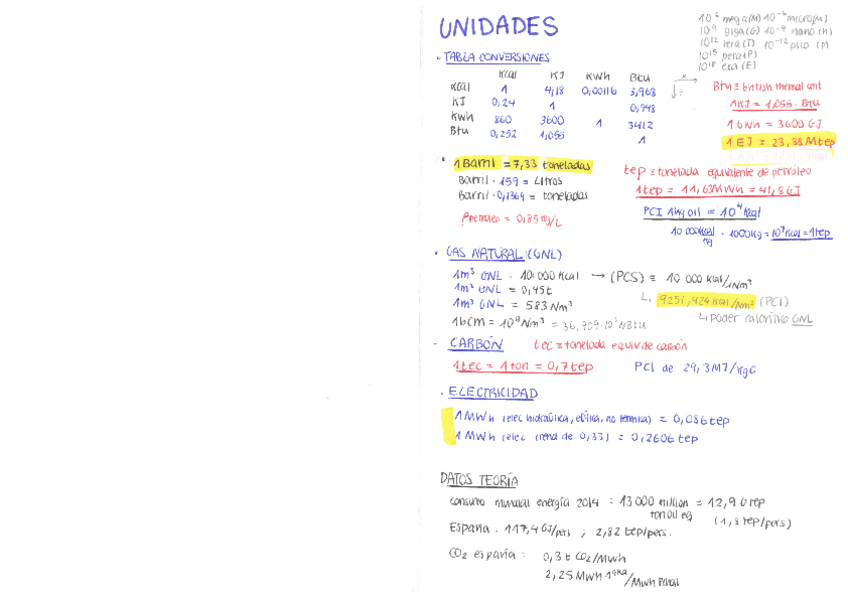 UNIDADES
10⁶ mega(M) 10⁻⁶ micro(μ)
10⁹ giga(G) 10⁻⁹ nano(n)
10¹² tera(T) 10⁻¹² pico (p)
10¹⁵ peta(P)
10¹⁸ exa(E)
· TABLA CONVERSIONES
Kcal KJ KWh Btu
Kcal 1 4,18 0,00116 3,968
KJ 0,24 1 0,948
Kwh 860 3600 1 3412
Btu 0,252 1,055 1
Btu ≡ british thermal unit
1KJ = 1,055 · Btu
1 GWh = 3600 GJ
1 EJ = 23,88 Mtep
· 1 Barril = 7,33 toneladas
Barril · 159 = Litros
Barril · 0,1364 = toneladas
ρpetroleo = 0,85 kg/L
tep ≡ tonelada equivalente de petróleo
1tep = 11,63MWh = 41,8GJ
PCI 1kg oil = 10⁴ Kcal
10 000 kcal/kg · 1000kg = 10⁷ Kcal = 1tep
· GAS NATURAL: (GNL)
1m³ GNL : 10.000 Kcal → (PCS) ≡ 10 000 Kcal/1Nm³
1m³ GNL = 0,45t
1m³ GNL = 583 Nm³
1bcm = 10⁹ Nm³ = 36,709·10⁶ MBtu
↳ 9251,424 Kcal/Nm³ (PCI)
↳ poder calorífico GNL
- CARBÓN tec ≡ tonelada equiv de carbón
1tec = 1 ton = 0,7 tep PCI de 29,3 MJ/kgC
· ELECTRICIDAD
1 MWh (elec hidraúlica, eólica, no termica) = 0,086 tep
1 MWh (elec (rend de 0,33) = 0,2606 tep
DATOS TEORÍA
consumo mundial energía 2014 : 13 000 million = 12,9 Gtep
ton oil eq (1,8 tep/pers)
España · 117,4 GJ/pers ; 2,82 tep/pers.
CO₂ españa : 0,3 t CO₂/MWh
2,25 MWh 1ᵃʳⁱᵃ/MWh final